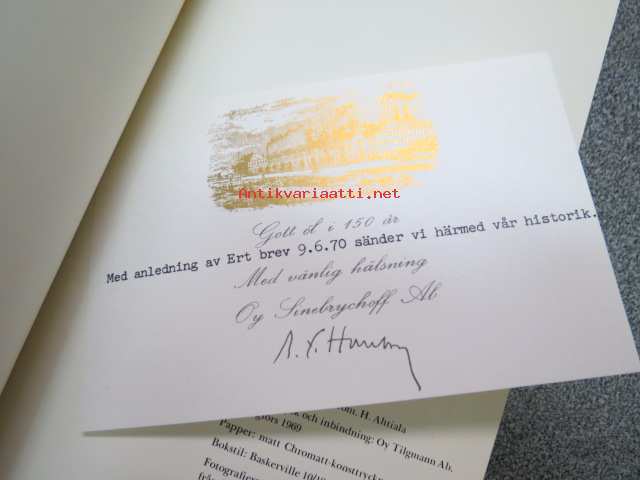 Antikvariaatti.net
Gott öl i 150 år
Med anledning av Ert brev 9.6.70 sänder vi härmed vår historik.
Med vänlig hälsning
Oy Sinebrychoff Ab
om. H. Ahtiala
och inbindning: Oy Tilgmann Ab.
fors 1969
Papper: matt Chromatt-konsttryck
Bokstil: Baskerville 10/1
Fotografier
från